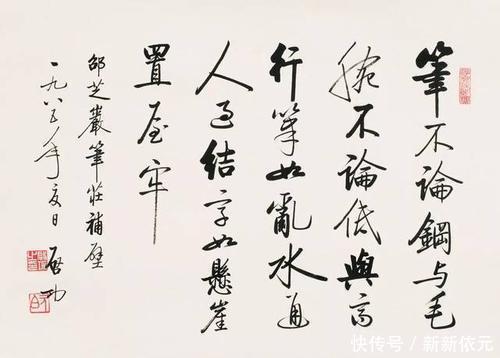 筆不論鋼与毛
腕不論低與高
行筆如亂水通
人過結字如懸崖
置屋牢
邵芝巖筆莊補壁
一九八五年夏日 启功
快传号 / 新新依元